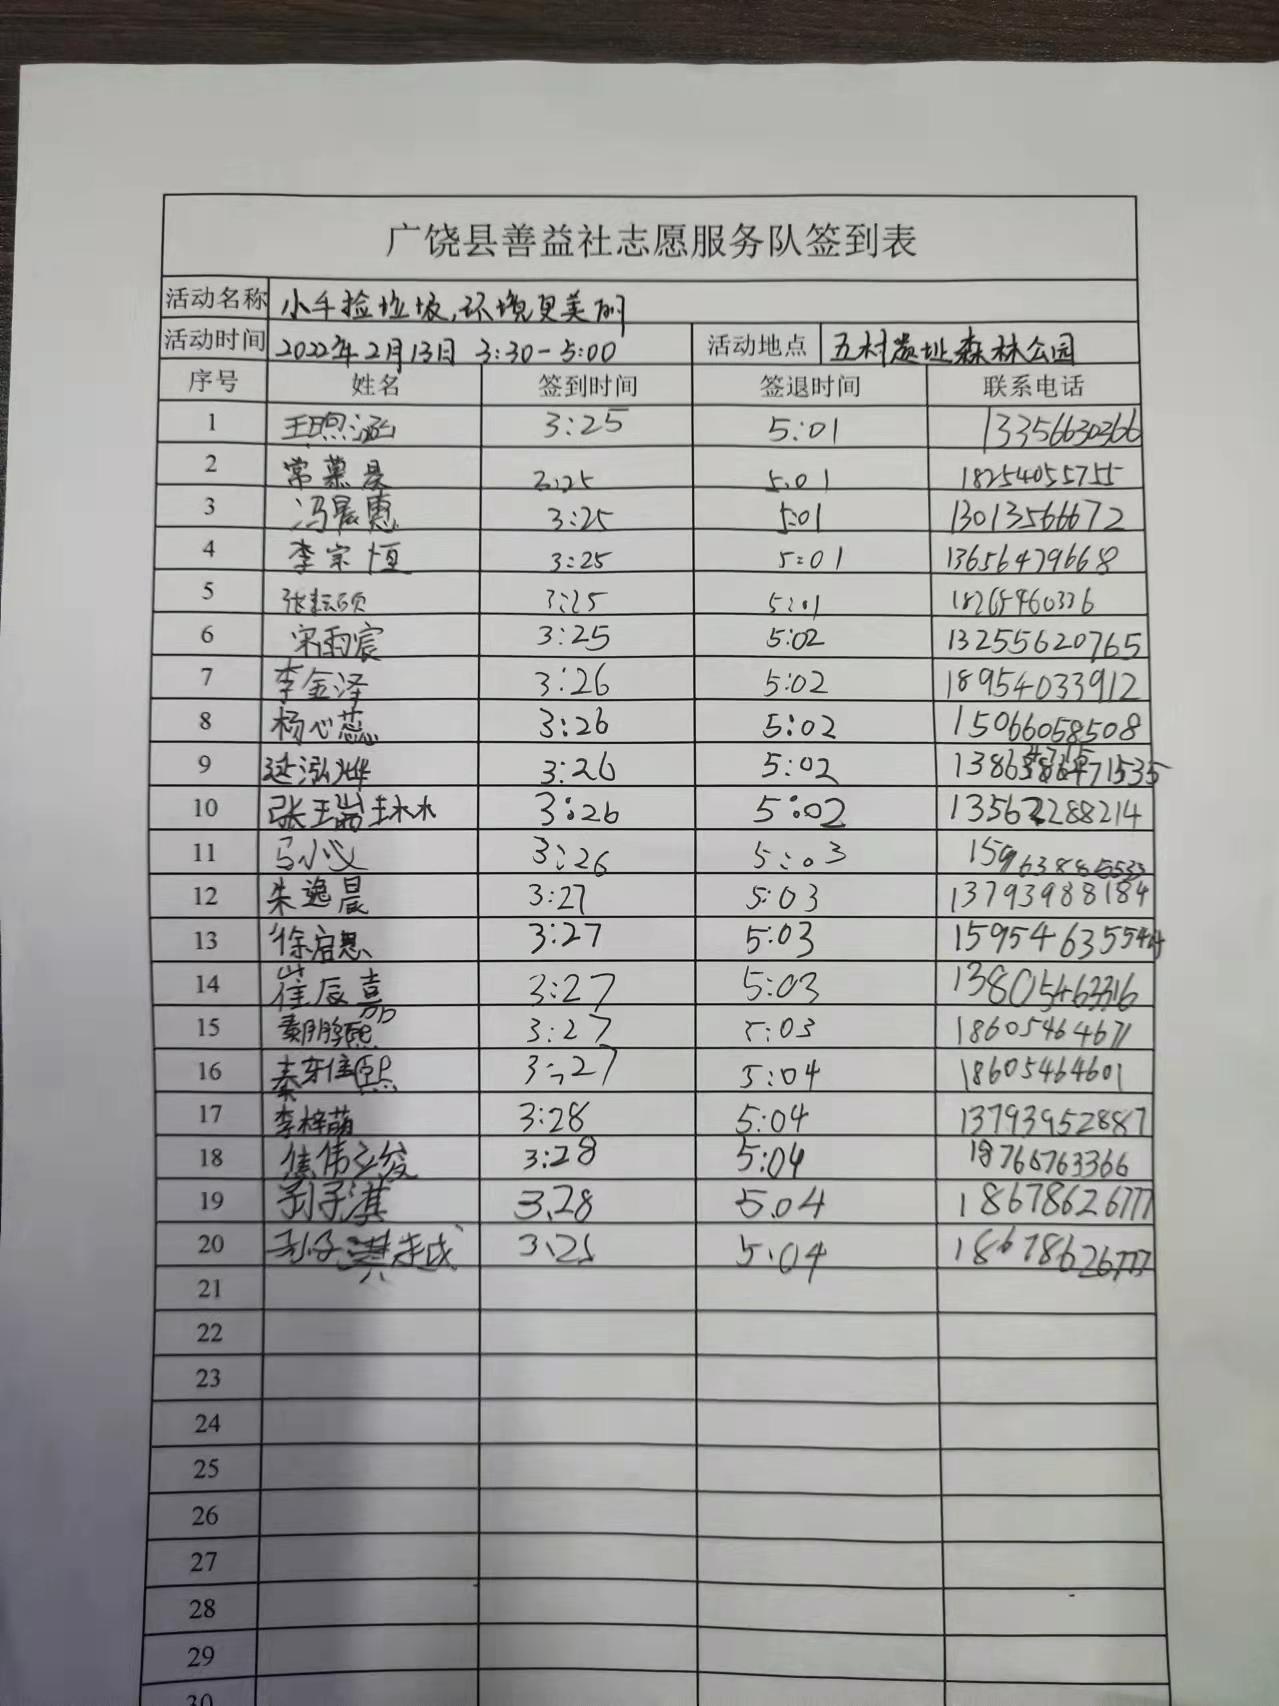 广饶县善益社志愿服务队签到表
活动名称 小手捡垃圾,环境更美丽
活动时间 2022年2月13日 3:30-5:00 活动地点 五村遗址森林公园
序号 姓名 签到时间 签退时间 联系电话
1 王煦涵 3:25 5:01 13356630366
2 常慕晨 3:25 5:01 18254055755
3 冯晨惠 3:25 5:01 13013566672
4 李宗恒 3:25 5:01 13656479668
5 3:25 5:01 18265460336
6 宋雨宸 3:25 5:02 13255620765
7 李金泽 3:26 5:02 18954033912
8 杨心蕊 3:26 5:02 15066058508
9 延泓烨 3:26 5:02
10 张瑞琳 3:26 5:02 13562288214
11 马小义 3:26 5:03
12 朱逸晨 3:27 5:03 13793988184
13 徐启恩 3:27 5:03 15954635544
14 崔辰嘉 3:27 5:03 13805463316
15 3:27 5:03 18605464671
16 3:27 5:04 18605464601
17 李梓萌 3:28 5:04 13793952887
18 3:28 5:04 18766763366
19 孙子淇 3.28 5.04 18678626777
20 5:04 18678626777
21
22
23
24
25
26
27
28
29
30